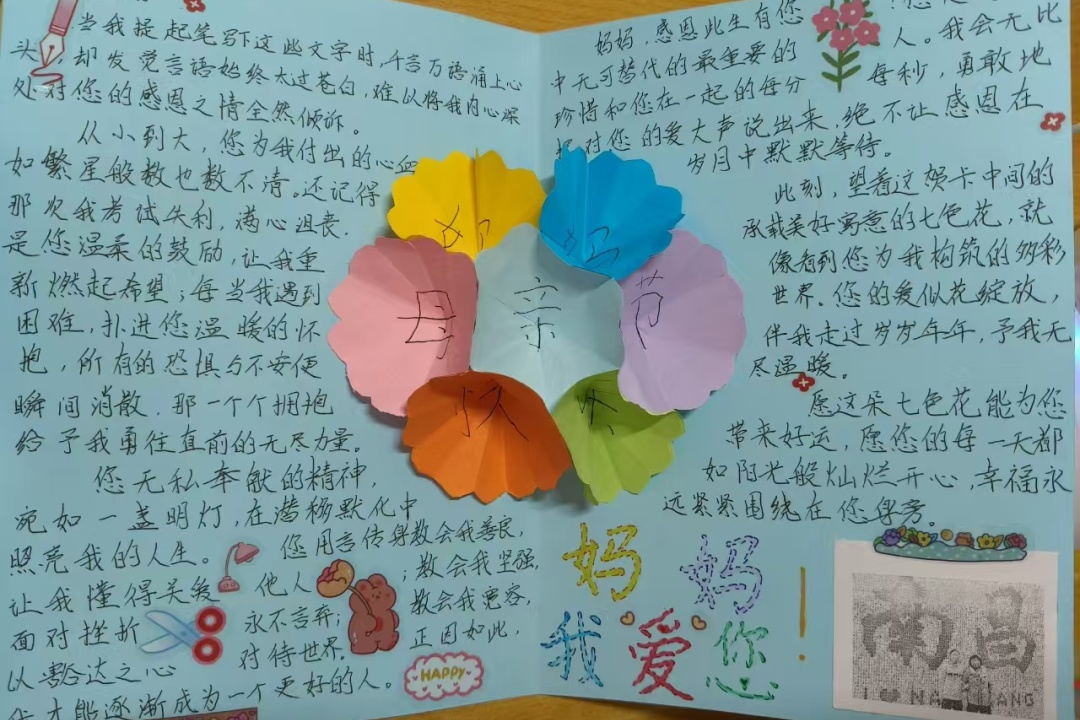 当我提起笔写下这些文字时,千言万语涌上心
头,却发觉言语始终太过苍白,难以将我内心深
处对您的感恩之情全然倾诉。
从小到大,您为我付出的心血
如繁星般数也数不清。还记得
那次我考试失利,满心沮丧.
是您温柔的鼓励,让我重
新燃起希望;每当我遇到
困难,扑进您温暖的怀
抱,所有的恐惧与不安便
瞬间消散.那一个个拥抱
给予我勇往直前的无尽力量。
您无私奉献的精神,
宛如一盏明灯,在潜移默化中
照亮我的人生。您用言传身教会我善良,
让我懂得关爱他人;教会我坚强,
面对挫折永不言弃;教会我宽容,
以豁达之心对待世界。正因如此,
才能逐渐成为一个更好的人。
妈妈,感恩此生有您
中无可替代的最重要的人。我会无比
珍惜和您在一起的每分每秒,勇敢地
对您的爱大声说出来,绝不让感恩在
岁月中默默等待。
此刻,望着这贺卡中间的
承载美好寓意的七色花,就
像看到您为我构筑的多彩
世界.您的爱似花绽放,
伴我走过岁岁年年,予我无
尽温暖。
愿这朵七色花能为您
带来好运,愿您的每一天都
如阳光般灿烂开心,幸福永
远紧紧围绕在您身旁。
妈妈
母亲节
快乐
妈妈
我爱你!
HAPPY
南昌